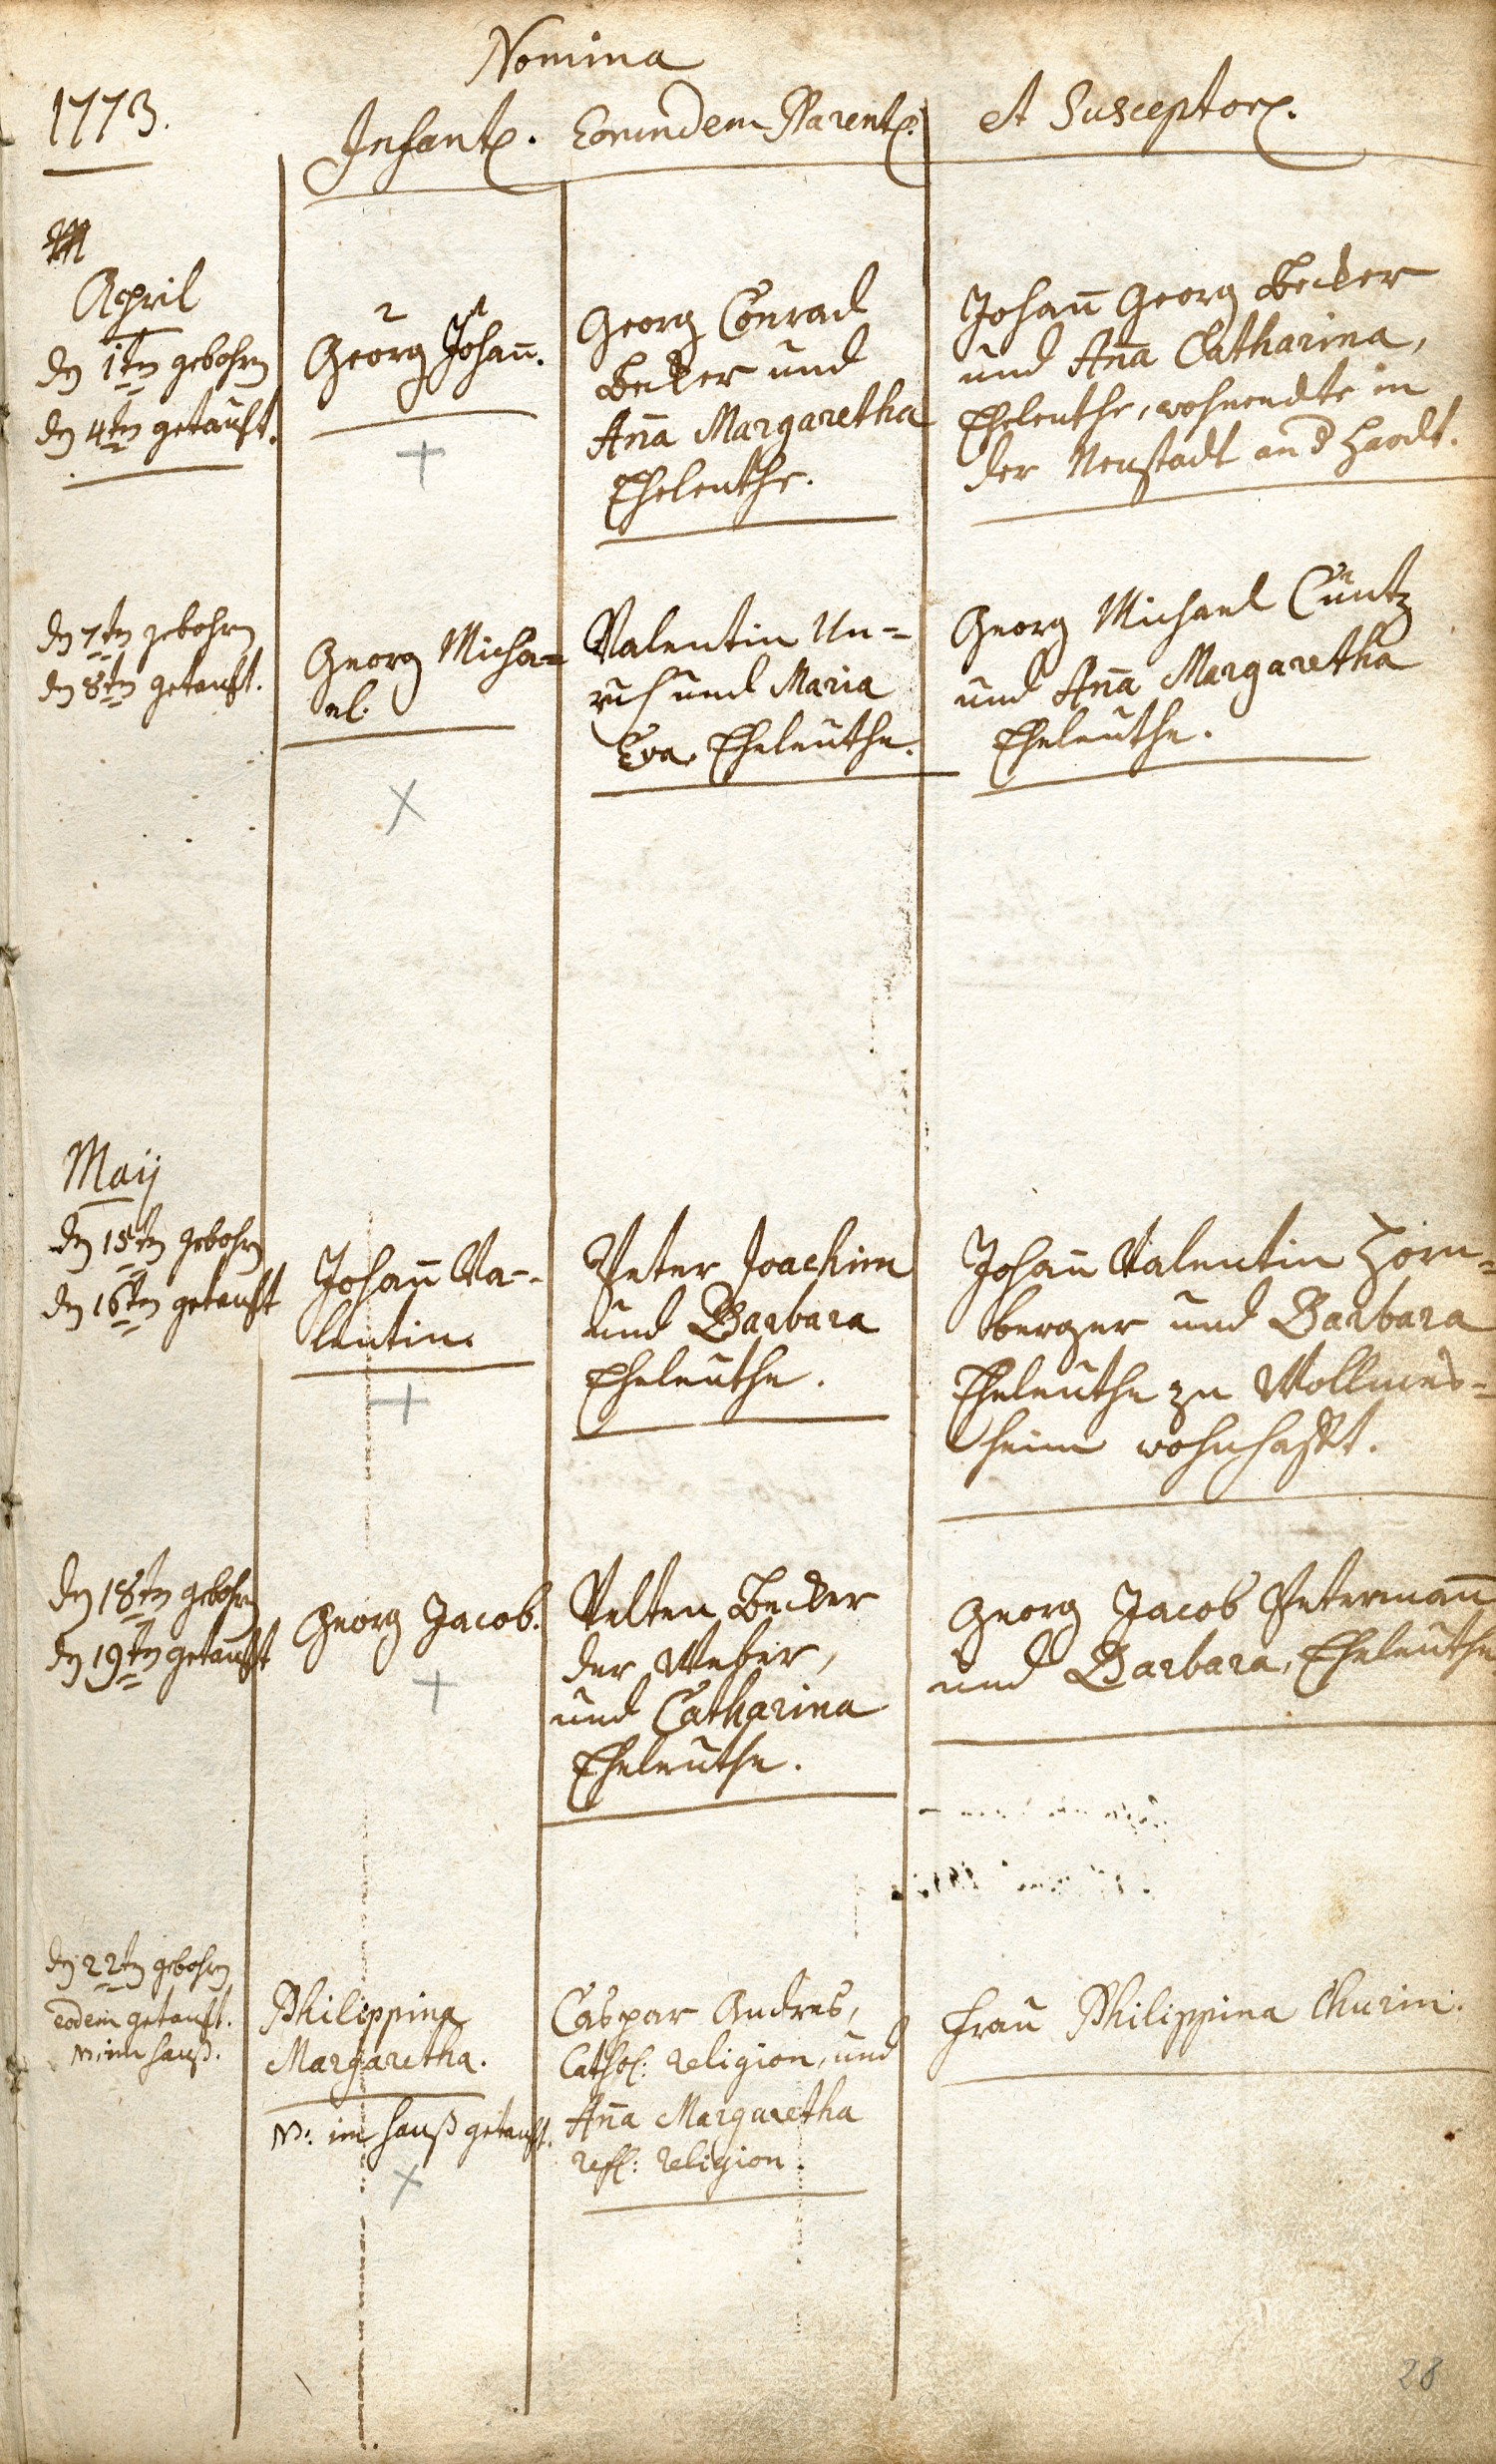 Nomina
1773.
Infant. Eorundem Parent. et Susceptor.
April
den 1ten gebohren
den 4ten getauft.
2 1
Georg Johann̄.
Georg Conrad
Becker und
Ana̅ Margaretha
Eheleuthe.
Johan̅ Georg Becker
und Ana̅ Catharina,
Eheleuthe, wohnendte in
der Neustadt an d Haardt.
den 7ten gebohren
den 8ten getauft.
Georg Micha=
el.
Valentin Un=
ruh und Maria
Eva Eheleuthe.
Georg Michael Cuntz
und Ana̅ Margaretha
Eheleuthe.
Maij
den 15ten gebohren
den 16ten getauft
Johan̅ Va-
lentin.
Peter Joachim
und Barbara
Eheleuthe.
Johan̅ Valentin Horn=
berger und Barbara
Eheleuthe zu Wollmes=
heim wohnhafft.
den 18ten gebohren
den 19ten getaufft
Georg Jacob.
Velten Becker
der Weber,
und Catharina
Eheleuthe.
Georg Jacob Peterman̅
und Barbara, Eheleuthe
den 22ten gebohren
eodem getauft.
NB. im Hauß.
Philippina
Margaretha.
NB: im Hauß getauft.
Caspar Andres,
Cathol: Religion, und
Ana̅ Margaretha
Refl: Religion.
Frau Philippina Thurin.
28